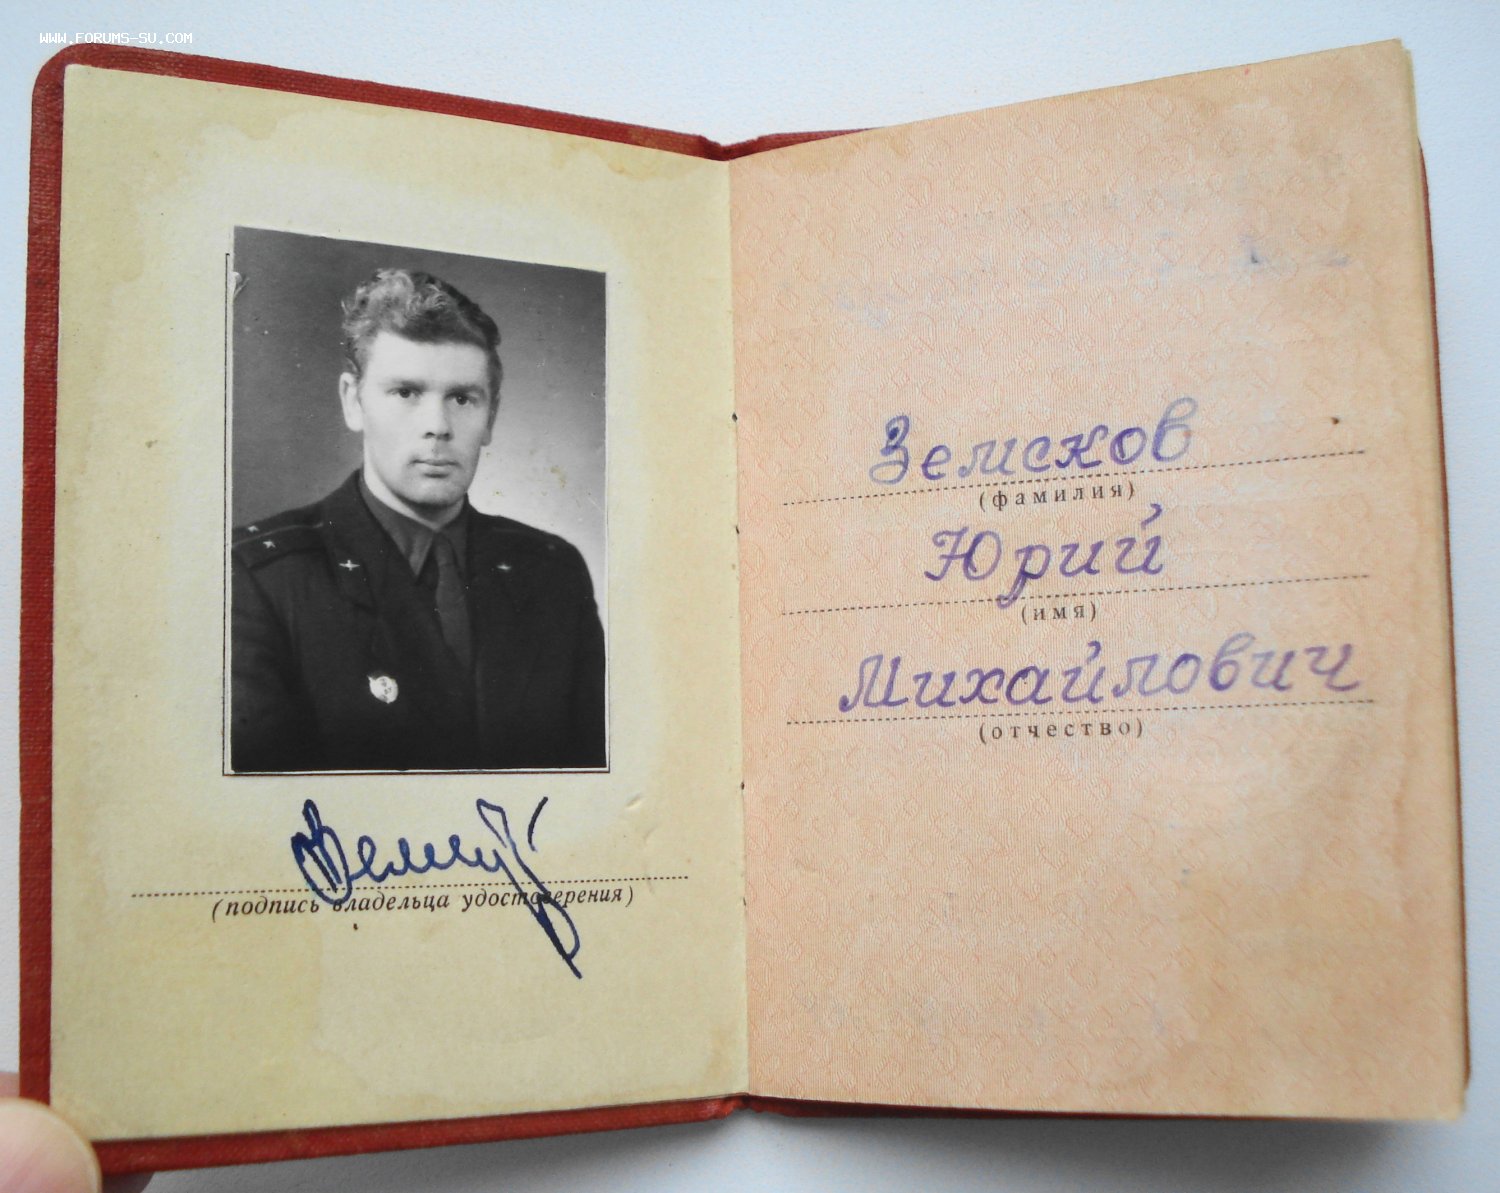 WWW.FORUMS-SU.COM
(подпись владельца удостоверения)
Земсков
(фамилия)
Юрий
(имя)
Михайлович
(отчество)